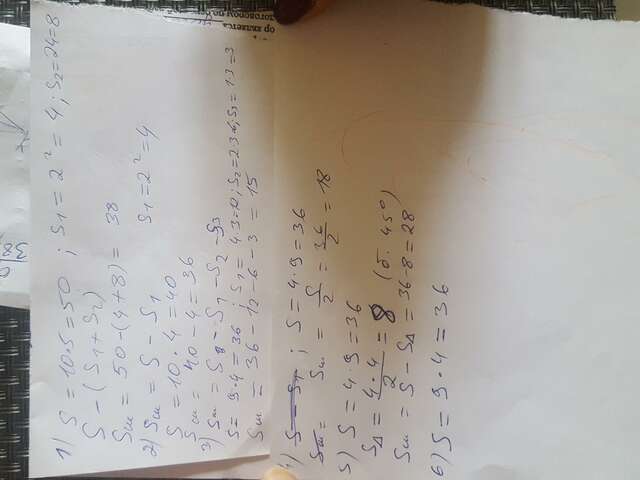 1) S = 10·5 = 50 ; S1 = 2² = 4 ; S2 = 2·4 = 8
S - (S1 + S2)
Sш = 50 - (4 + 8) = 38
2) Sш = S - S1 S1 = 2² = 4
S = 10·4 = 40
Sш = 40 - 4 = 36
3) Sш = S - S1 - S2 - S3
S = 9·4 = 36 ; S1 = 4·3 = 12 ; S2 = 2·3 = 6 ; S3 = 1·3 = 3
Sш = 36 - 12 - 6 - 3 = 15
4) S = 4·9 = 36
Sш = S/2 = 36/2 = 18
5) S = 4·9 = 36
SΔ = 4·4/2 = 8 (б. 45°)
Sш = S - SΔ = 36 - 8 = 28
6) S = 9·4 = 36